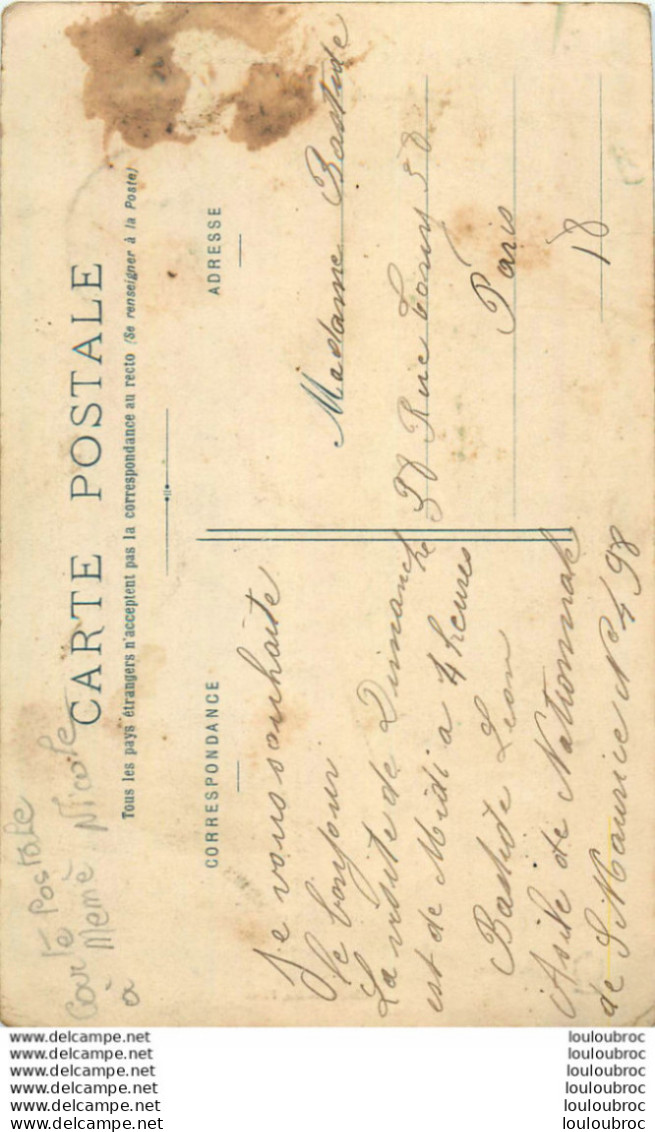 Carte Postale
à Mémé Nicole
CARTE POSTALE
Tous les pays étrangers n'acceptent pas la correspondance au recto (Se renseigner à la Poste)
CORRESPONDANCE
ADRESSE
Je vous souhaite
le bonjour
La visite de Dimanche
est de Midi a 4 heures
Bastide Leon
Asile de Nationnal
de St Maurice N° 498
Madame Bastide
58 Rue 58
Paris
18
www.delcampe.net
www.delcampe.net
www.delcampe.net
www.delcampe.net
www.delcampe.net
www.delcampe.net
louloubroc
louloubroc
louloubroc
louloubroc
louloubroc
louloubroc